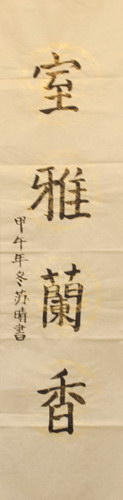 室雅蘭香
甲午年冬苏晴書